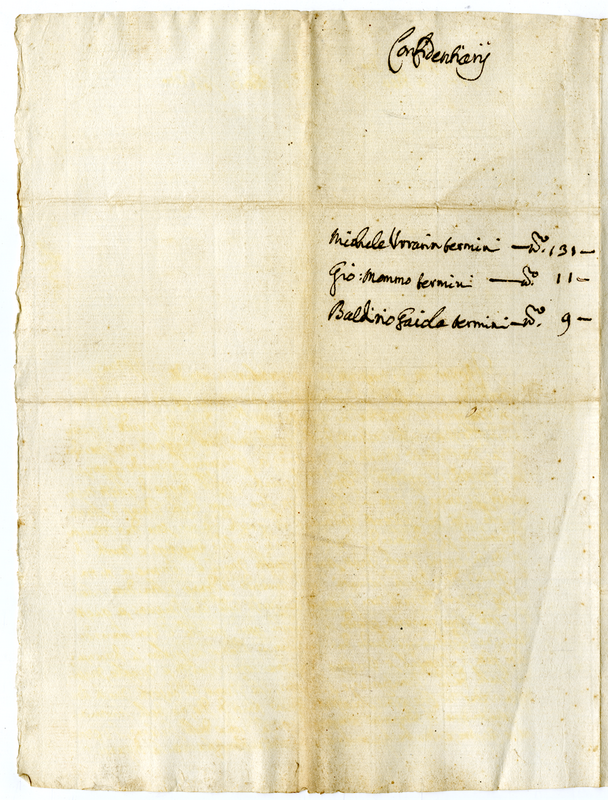 Confidentiarij
Michele Vrrarin termini — n.º 131 —
Gio: Memmo termini — n.º 11 —
Baldino Gaida termini — n.º 9 —